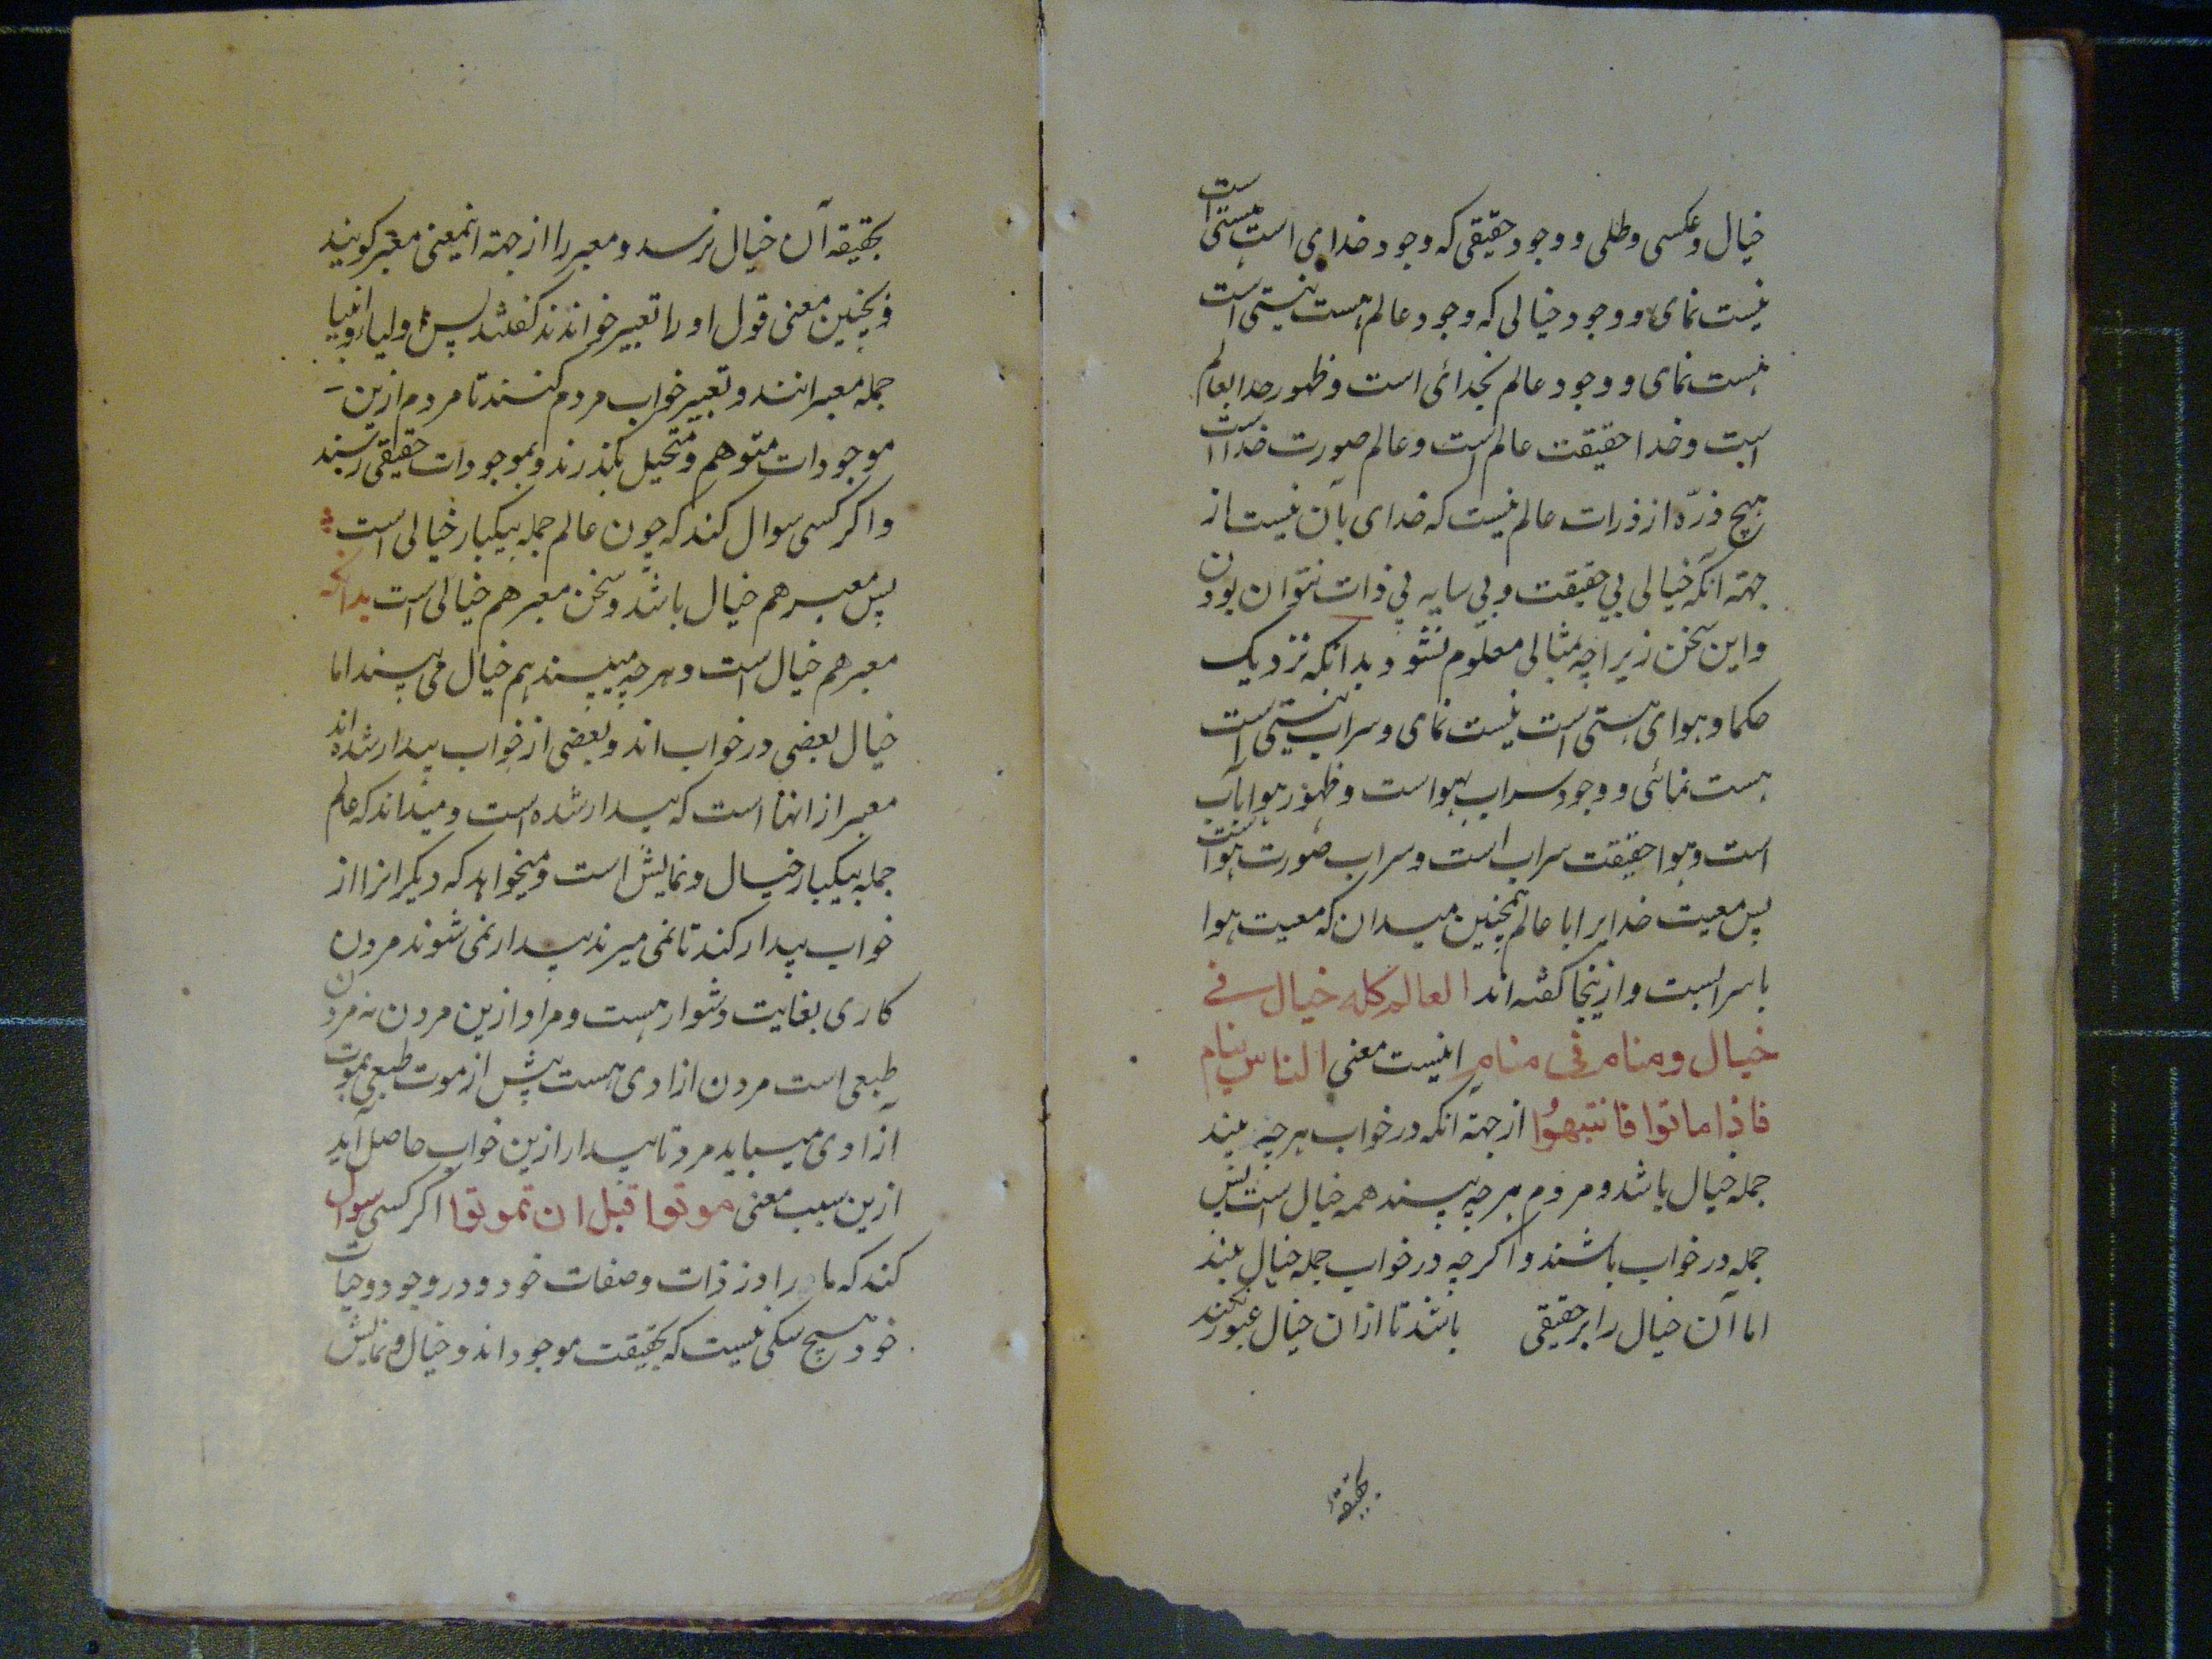 خیال و عکسی و ظلی و وجود حقیقی که وجود خدای است هستی است
نیست نمای و وجود خیالی که وجود عالم است نیستی است
هست نمای و وجود عالم بخدائی است و ظهور خدا بعالم
است و خدا حقیقت عالم است و عالم صورت خداست
هیچ ذرّه از ذرات عالم نیست که خدای بآن نیست از
جهة آنکه خیالی بی حقیقت و بی سایه بی ذات نتوان بودن
و این سخن زیراچه مثالی معلوم نشود بدانکه نزدیک
حکما و هوای هستی است نیست نمای و سراب نیستی است
هست نمائی و وجود سراب بهواست و ظهور هوا بآب
است و هوا حقیقت سراب است و سراب صورت هواست
پس معیت خدایرا با عالم همچنین میدان که معیت هوا
با سراب است و ازینجا گفته اند العالم کله خیال فی
خیال و منام فی منام اینست معنی الناس نیام
فاذا ماتوا فانتبهوا از جهة آنکه در خواب هر چه بیند
جمله خیال باشد و مردم هر چه بیند همه خیال است پس
جمله در خواب باشند و اکر چه در خواب جمله خیال بیند
اما آن خیال را بر حقیقی باشد تا ازان خیال عبور کند
بحقیقة
بحقیقه آن خیال نرسد و معبر را از جهة اینمعنی معبر کویند
و بچنین معنی قول او را تعبیر خواندند کفتند پس اولیا و انبیا
جمله معبرانند و تعبیر خواب مردم کنند تا مردم ازین
موجودات متوهم و متخیل بکذرند و بموجودات حقیقی رسند
و اکر کسی سوال کند که چون عالم جمله بیکبار خیالی است
پس معبر هم خیال باشد و سخن معبر هم خیالی است بدانکه
معبر هم خیال است و هر چه میبیند هم خیال می بیند اما
خیال بعضی در خواب اند و بعضی از خواب بیدار شده اند
معبر از انها است که بیدار شده است و میداند که عالم
جمله بیکبار خیال و نمایش است و میخواهد که دیکرانرا از
خواب بیدار کند تا نمی میرند بیدار نمی شوند مردن
کاری بغایت دشوار هست و مراد ازین مردن نه مردن
طبعی است مردن ازادی هست پیش از موت طبعی بموت
آزادی میباید مرد تا بیدار ازین خواب حاصل آید
ازین سبب معنی موتوا قبل ان تموتوا اکر کسی سوال
کند که ما را در ذات و صفات خود و در وجود و حیات
خود هیچ شکی نیست که بحقیقت موجود اند و خیال و نمایش